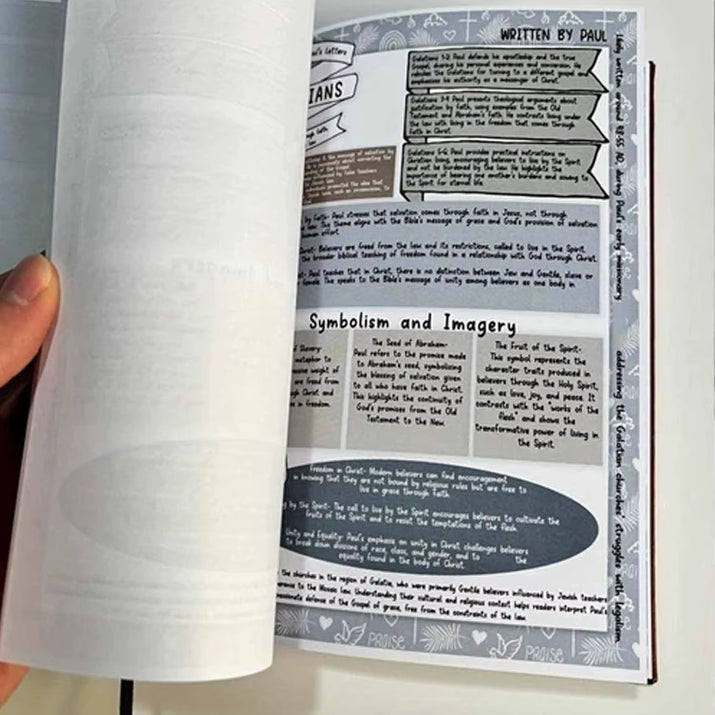 WRITTEN BY PAUL
Paul's Letters
IANS
Galatians 1-2: Paul defends his apostleship and the true
Gospel, sharing his personal experiences and conversion. He
rebukes the Galatians for turning to a different gospel and
emphasizes his authority as a messenger of Christ.
Galatians 3-4: Paul presents theological arguments about
justification by faith, using examples from the Old
Testament and Abraham's faith. He contrasts living under
the law with living in the freedom that comes through
faith in Christ.
Galatians 5-6: Paul provides practical instructions on
Christian living, encouraging believers to live by the Spirit
and not be burdened by the law. He highlights the
importance of bearing one another's burdens and sowing to
the Spirit for eternal life.
the message of salvation by
false teachers
by Faith- Paul stresses that salvation comes through faith in Jesus, not through
law. This theme aligns with the Bible's message of grace and God's provision of salvation
human effort.
Christ- Believers are freed from the law and its restrictions, called to live in the Spirit.
the broader biblical teaching of freedom found in a relationship with God through Christ.
Paul teaches that in Christ, there is no distinction between Jew and Gentile, slave or
female. This speaks to the Bible's message of unity among believers as one body in
Symbolism and Imagery
of Slavery-
metaphor to
weight of
are freed from
Christ and
in freedom.
The Seed of Abraham-
Paul refers to the promise made
to Abraham's seed, symbolizing
the blessing of salvation given
to all who have faith in Christ.
This highlights the continuity of
God's promises from the Old
Testament to the New.
The Fruit of the Spirit-
This symbol represents the
character traits produced in
believers through the Holy Spirit,
such as love, joy, and peace. It
contrasts with the "works of the
flesh" and shows the
transformative power of living in
the Spirit.
Freedom in Christ- Modern believers can find encouragement
in knowing that they are not bound by religious rules but are free to
live in grace through faith.
by the Spirit- The call to live by the Spirit encourages believers to cultivate the
fruits of the Spirit and to resist the temptations of the flesh.
Unity and Equality- Paul's emphasis on unity in Christ challenges believers
to break down divisions of race, class, and gender, and to the
equality found in the body of Christ.
the churches in the region of Galatia, who were primarily Gentile believers influenced by Jewish teachers
to the Mosaic law. Understanding their cultural and religious context helps readers interpret Paul's
passionate defense of the Gospel of grace, free from the constraints of the law.
Likely written around 48-55 AD, during Paul's early missionary
addressing the Galatian churches' struggles with legalism.
PRAISE
PRAISE